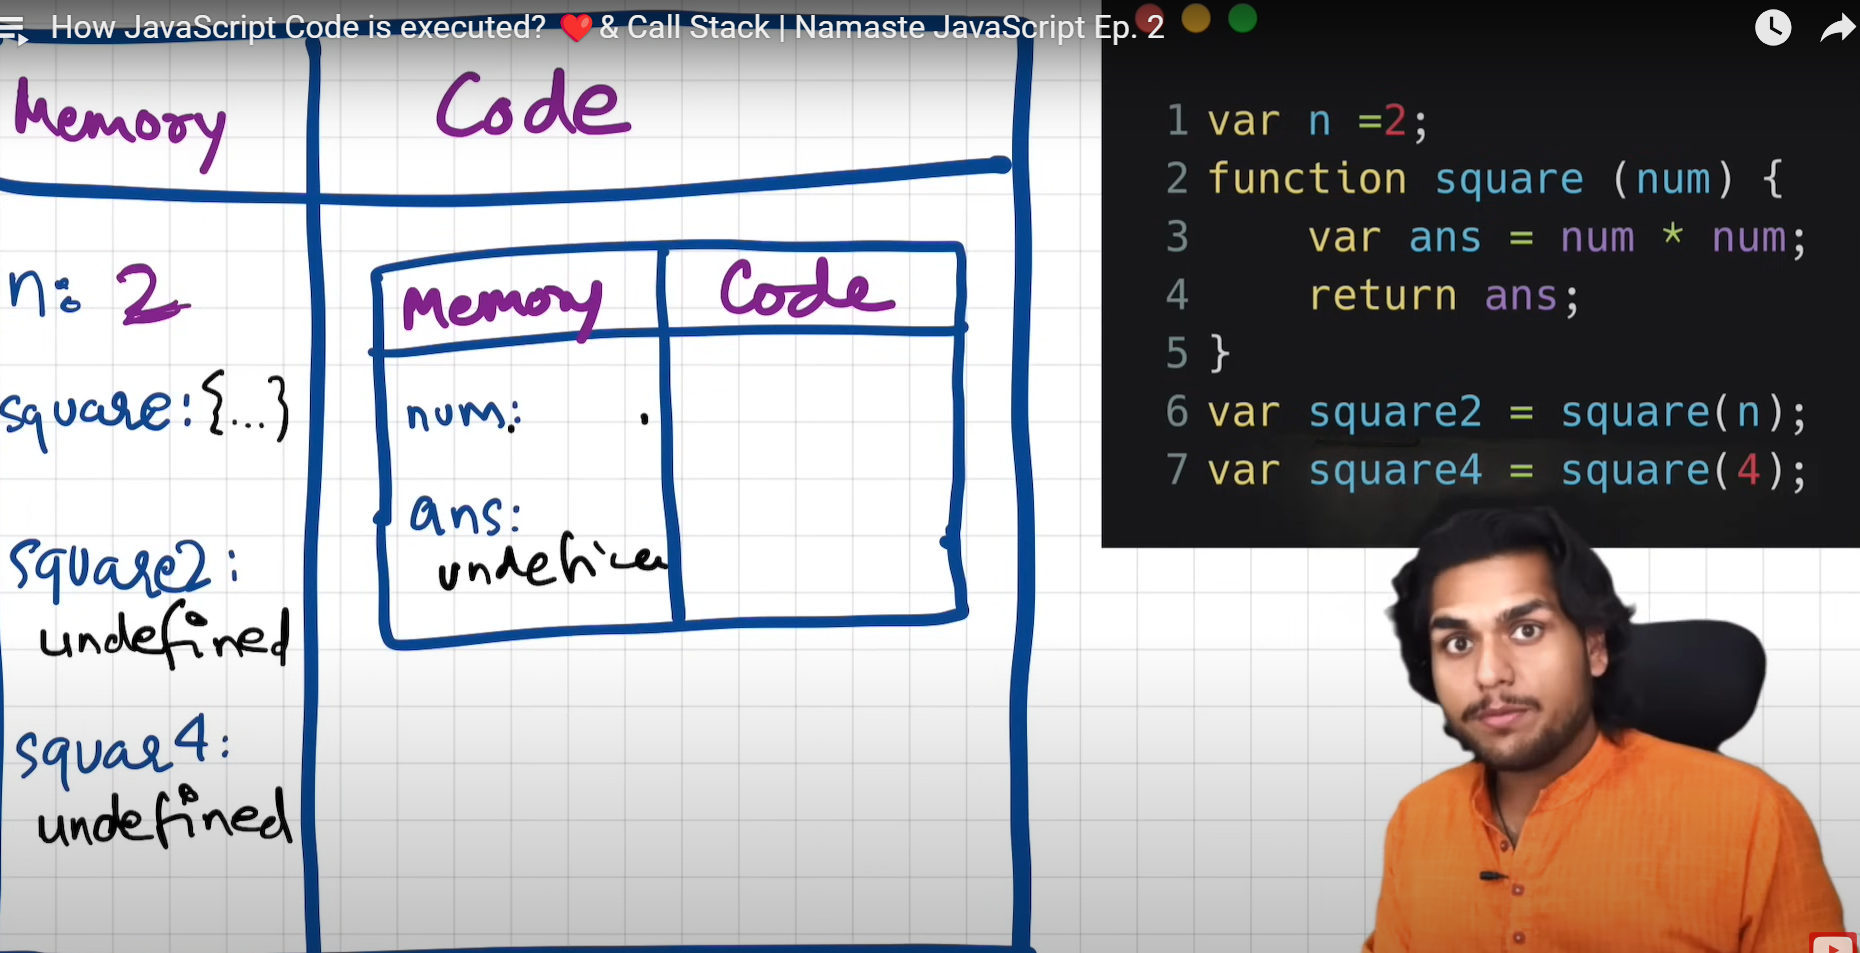 How JavaScript Code is executed? ❤️ & Call Stack | Namaste JavaScript Ep. 2
Memory
Code
n: 2
square: {...}
square2:
undefined
squar4:
undefined
Memory
Code
num:
ans:
1 var n =2;
2 function square (num) {
3 var ans = num * num;
4 return ans;
5 }
6 var square2 = square(n);
7 var square4 = square(4);